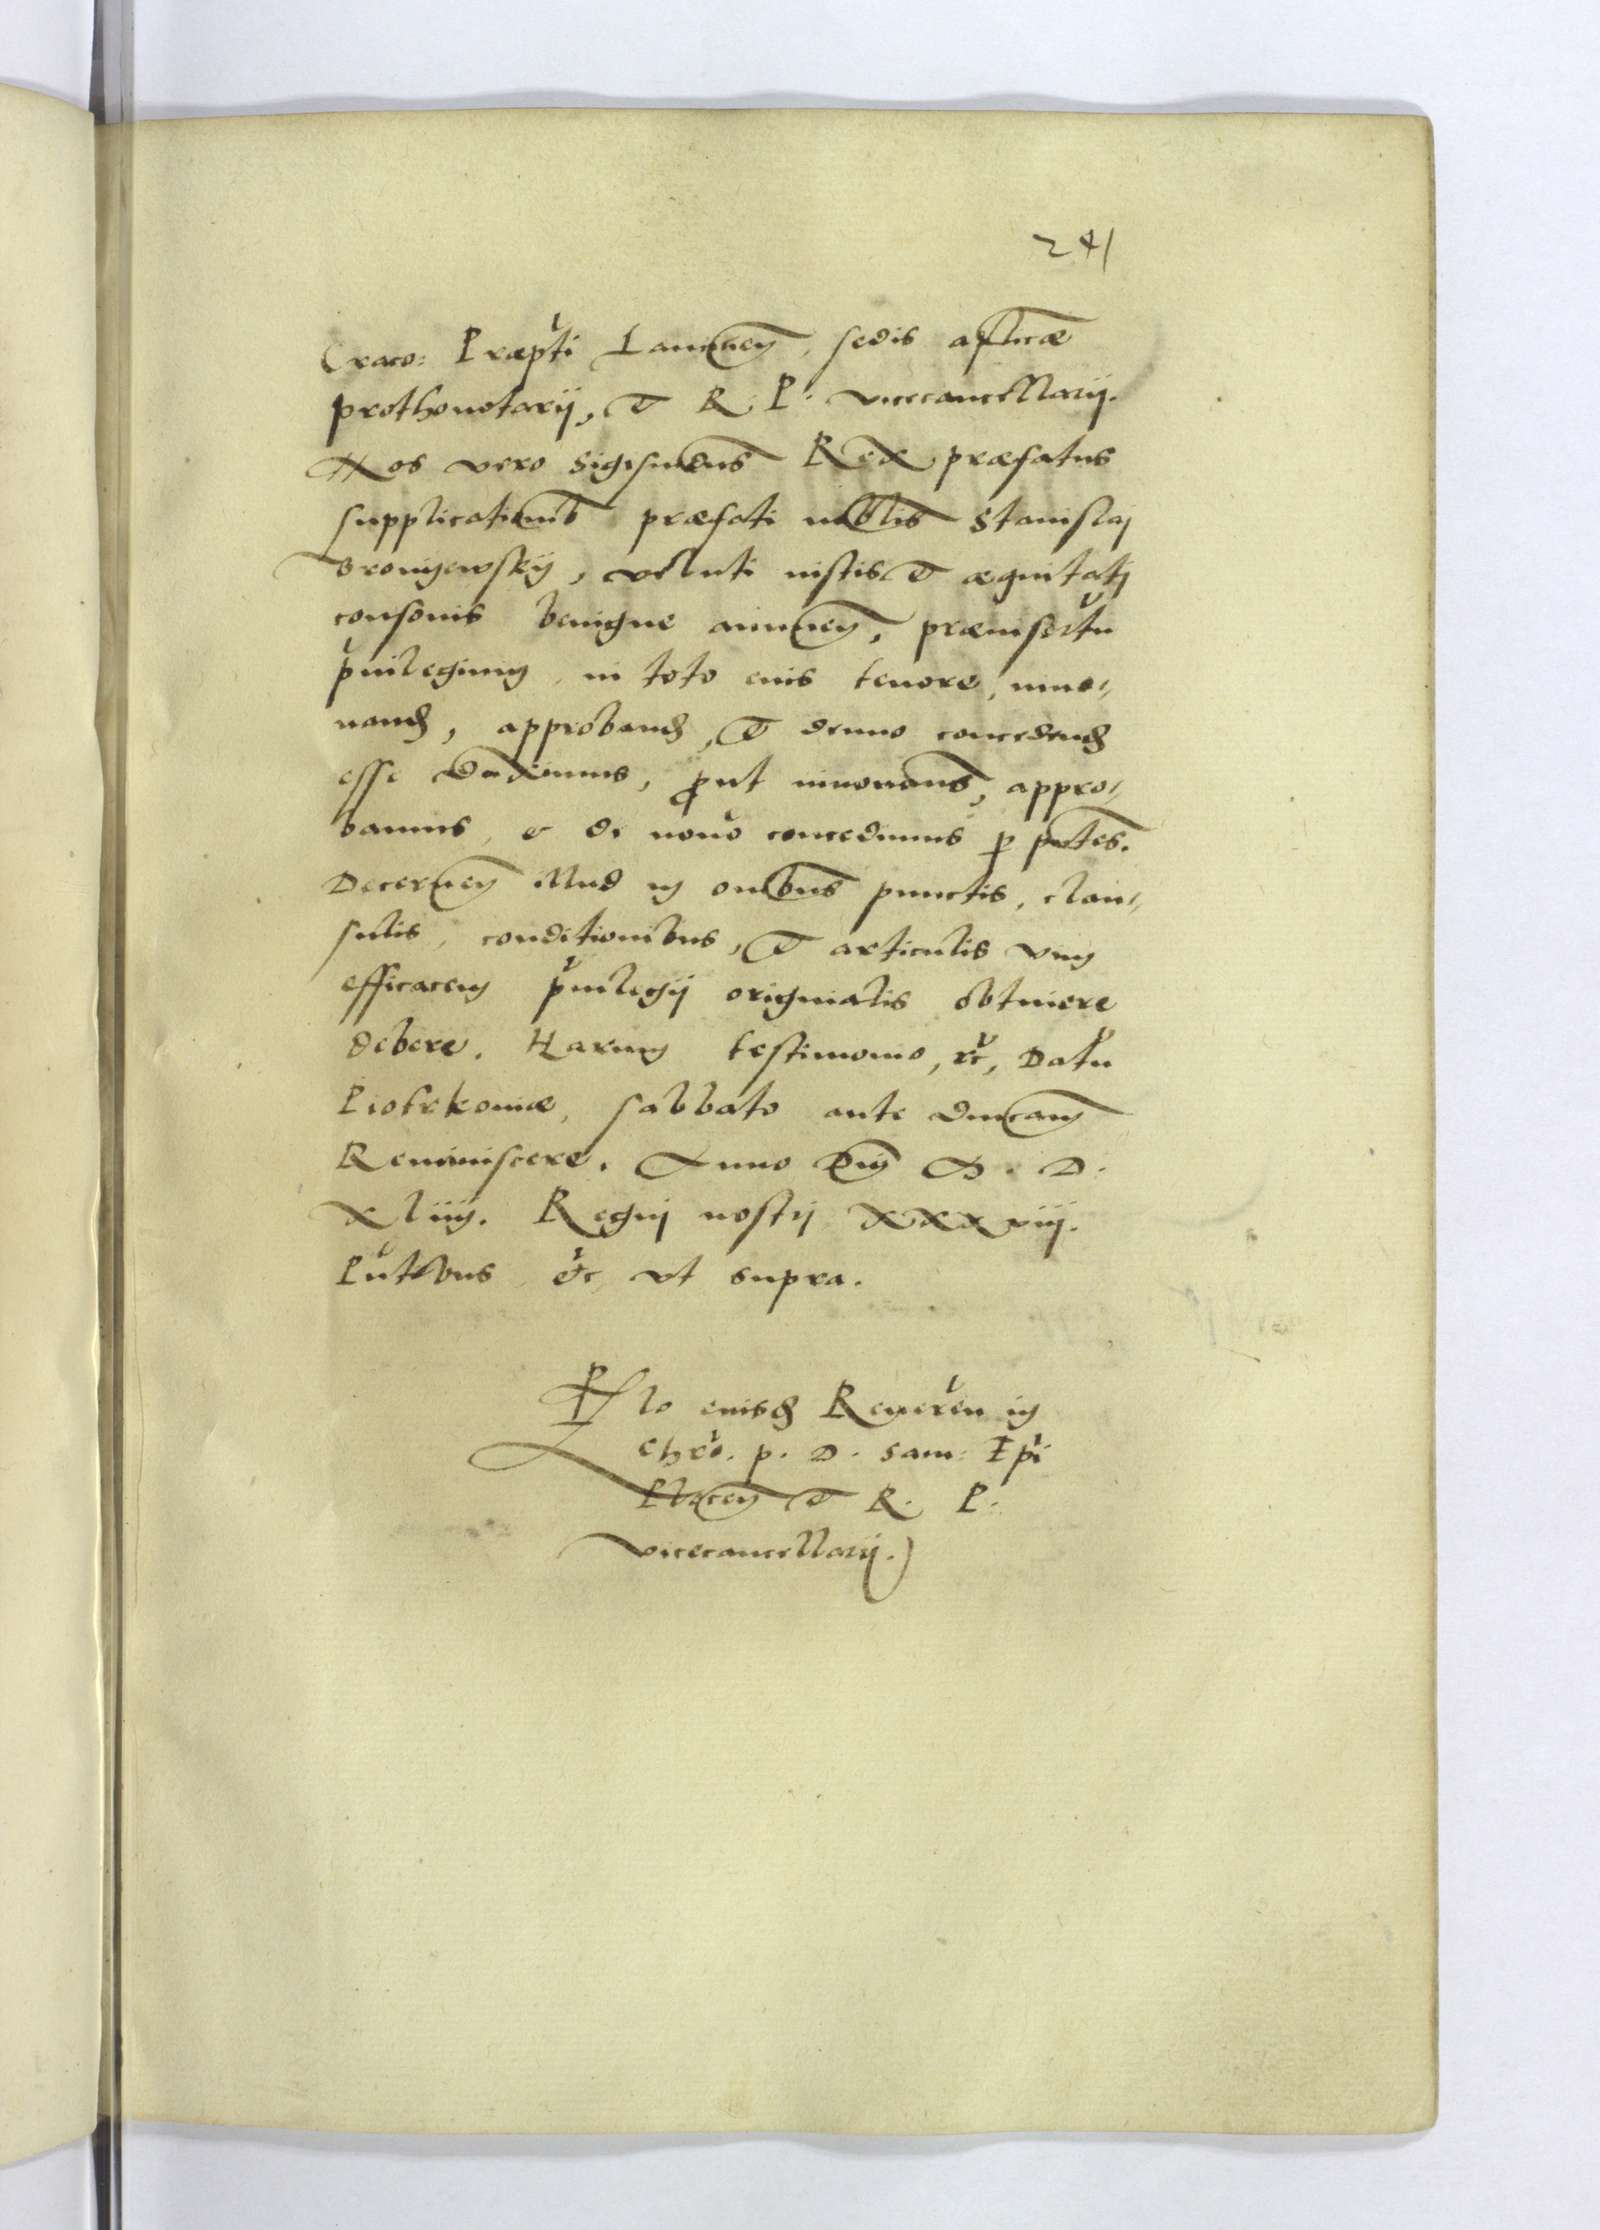 241
Craco: Præpti Lancicien, sedis aplicæ
prothonotarij, et R. P. vicecancellarij.
Nos vero Sigismdus Rex præfatus
supplicationib præfati nobilis Stanislaj
Bronyewskÿ, veluti iustis et æquitatj
consonis benigne annuen, præinsertu
priuilegium, in toto euis tenore, inno-,
uand, approband, et denuo concedend
esse duximus, prout innouamus, appro-,
bamus, et de nouo concedimus p pntes.
Decernen illud in omibus punctis, clau-,
sulis, conditionibus, et articulis vim
efficacem priuilegij originalis obtinere
debere. Harum testimonio, etc, Datu
Piotrkouiæ, sabbato ante dnicam
Reminiscere. Anno Dni M. D.
xliiij. Regnj nostrj xxxviij.
Pntibus etc vt supra.
Rlo eiusd Reueren in
Chro. p. D. Sam: Epi
Plocen et R. P.
vicecancellarij.)